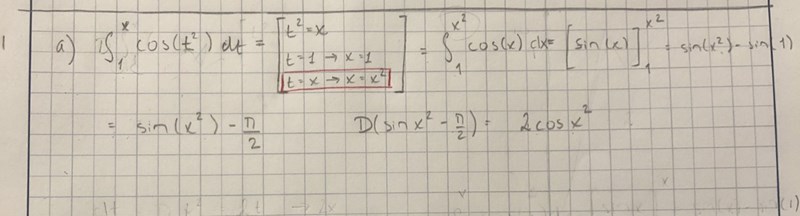 1 a) ∫₁ˣ cos(t²) dt = [t² = x
t = 1 → x = 1
t = x → x = x²] = ∫₁^(x²) cos(x) dx = [sin(x)]₁^(x²) = sin(x²) - sin(1)
= sin(x²) - π/2 D(sin x² - π/2) = 2cos x²
(1)